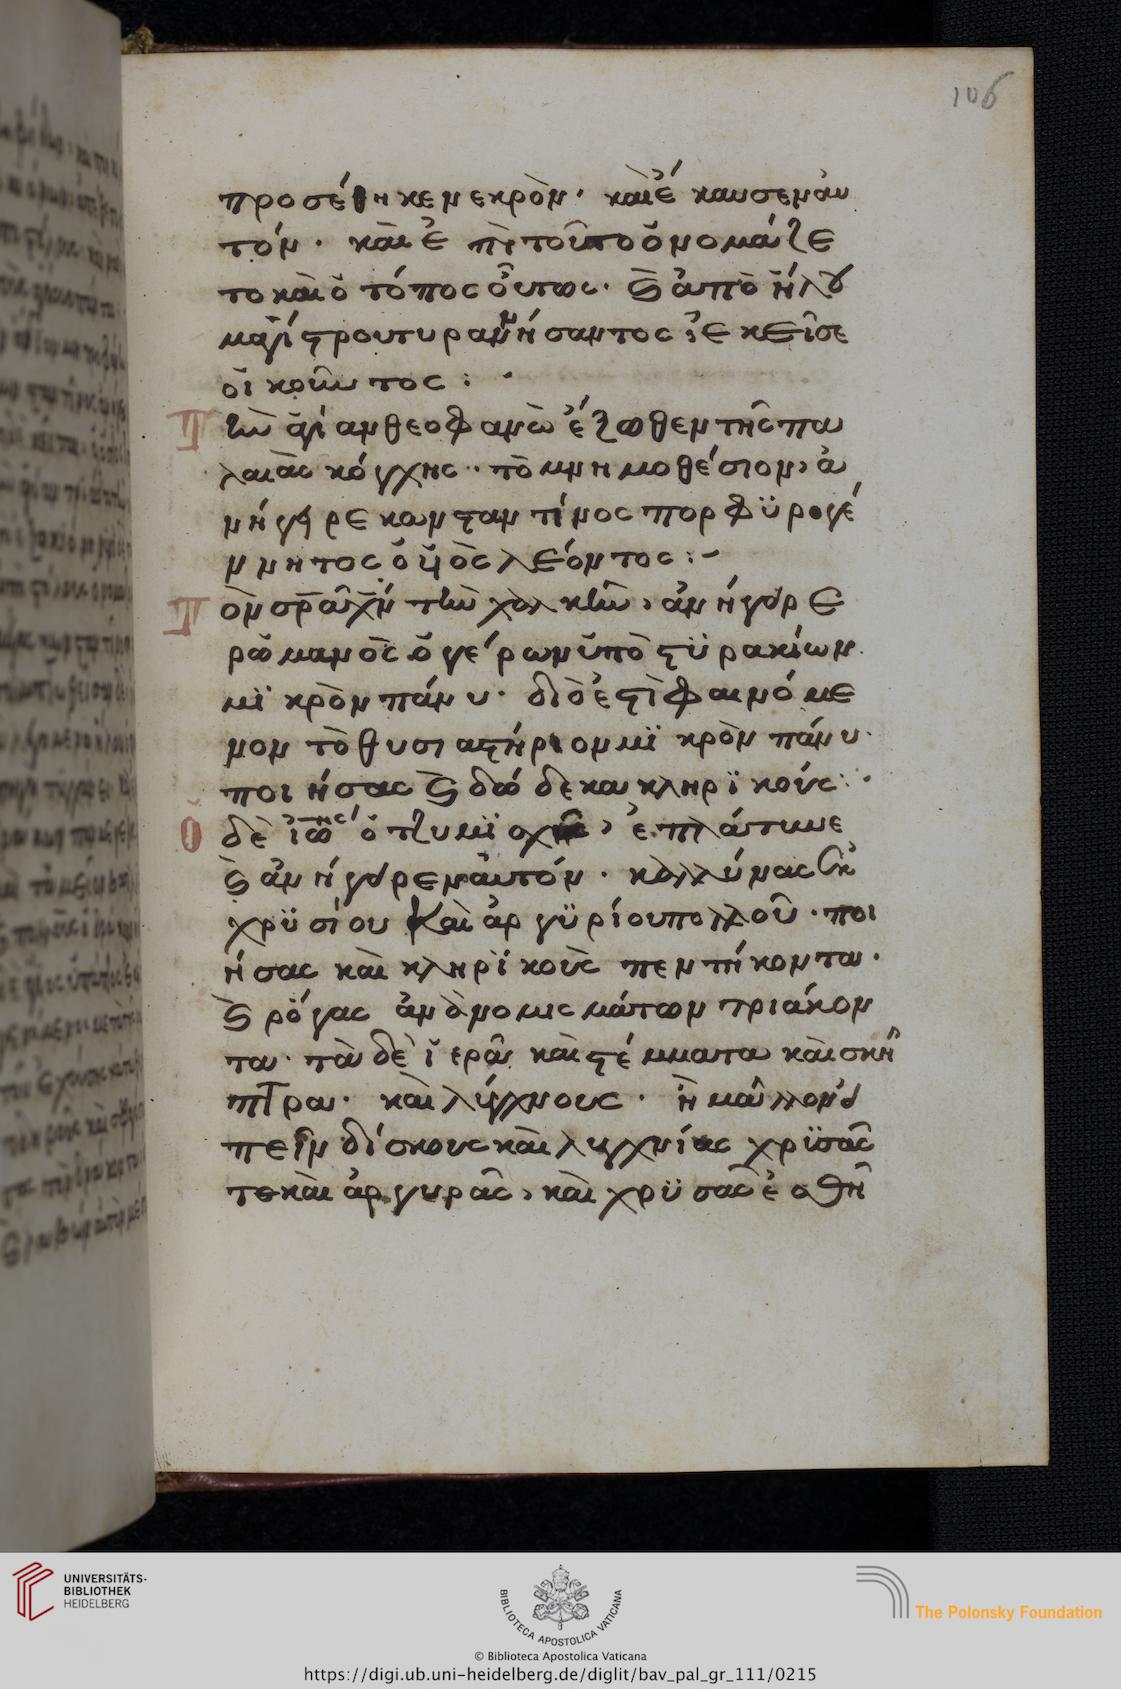 106
προσέθηκε νεκρὸν· καὶ ἔκαυσεν αὐ
τόν· καὶ ἐπὶ τούτο ὀνομάζε
το καὶ ὁ τόπος οὕτως· ϛ ἀπὸ ἤλου
μαγίστρου τυραννήσαντος ἐκεῖσε
οἰκοῦντος:
Τὴν ἁγίαν θεοφανὼ ἔξωθεν τῆς πα
λαιᾶς κόγχης· τὸ μνημοθέσιον, ἀ
νήγειρε κωνσταντίνος πορφϋρογέ
ννητος ὁ υἱὸς λέοντος:
Τὸν σρα ἀρχην τῶν χαλκῶν, ἀνήγειρε
ρωμανὸς ὁ γέρων ὑπὸ στϋρακίων
μϊκρὸν πάνυ· διὸ ἐστὶ φαινόμε
νον τὸ θυσιαστήριον μϊκρὸν πάνυ·
ποιήσας ϛ δώδεκα κληρϊκούς·
Ὁ δὲ ἰω ὁ τζυμϊσχῆς, ἐπλάτυνε
ϛ ἀνήγειρεν αὐτόν· καλλύνας ἐκ
χρϋσίου καὶ ἀργϋρίου πολλοῦ· ποι
ήσας καὶ κληρϊκοὺς πεντήκοντα·
ϛ ρόγας ἀνὰ νομισμάτων τριάκον
τα· τὰ δὲ ἱερὰ καὶ στέμματα καὶ σκῆ
πτρα· καὶ λύχνους· ἢ μᾶλλον εἰ
πεῖν δίσκους καὶ λυχνίας χρϋσᾶς
τε καὶ ἀργυρᾶς, καὶ χρϋσᾶς ἐσθῆ
UNIVERSITÄTS-
BIBLIOTHEK
HEIDELBERG
BIBLIOTECA APOSTOLICA VATICANA
The Polonsky Foundation
© Biblioteca Apostolica Vaticana
https://digi.ub.uni-heidelberg.de/diglit/bav_pal_gr_111/0215